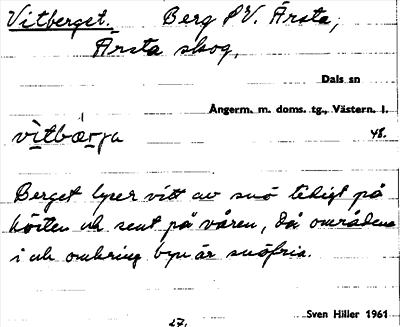 Vitberget. Berg SV. Årsta;
Årsta skog.
Dals sn
Ångerm. m. doms. tg., Västern. l.
48.
Berget lyser vitt av snö tidigt på
hösten och sent på våren, då områdena
i och omkring byn är snöfria.
Sven Hiller 1961
27.